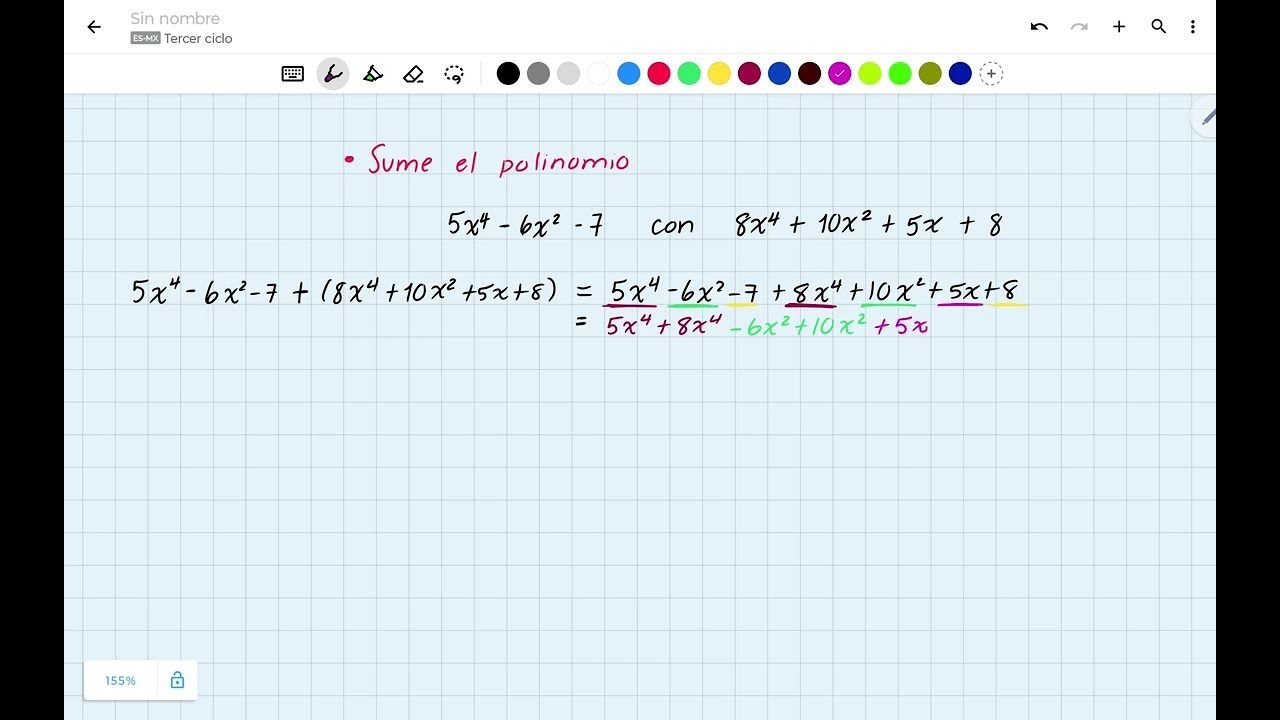 Sin nombre
ES-MX Tercer ciclo
• Sume el polinomio
5x⁴ - 6x² - 7 con 8x⁴ + 10x² + 5x + 8
5x⁴ - 6x² - 7 + (8x⁴ + 10x² + 5x + 8) = 5x⁴ - 6x² - 7 + 8x⁴ + 10x² + 5x + 8
= 5x⁴ + 8x⁴ - 6x² + 10x² + 5x
155%